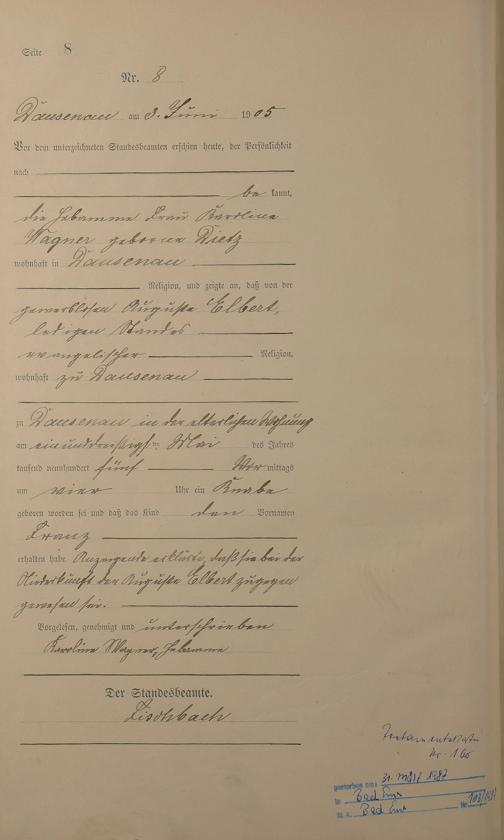 Seite 8
Nr. 8
Dausenau am 3. Juni 1905
Vor dem unterzeichneten Standesbeamten erschien heute, der Persönlichkeit
nach
be kannt,
die Hebamme Frau Karoline
Wagner geborne Dietz
wohnhaft in Dausenau
Religion, und zeigte an, daß von der
gewerblosen Auguste Elbert,
ledigen Standes
evangelischer Religion,
wohnhaft zu Dausenau
zu Dausenau in der elterlichen Wohnung
am einunddreißigsten Mai des Jahres
tausend neunhundert fünf Vor mittags
um vier Uhr ein Knabe
geboren worden sei und daß das Kind den Vornamen
Franz
erhalten habe. Anzeigende erklärte, daß sie bei der
Niederkunft der Auguste Elbert zugegen
gewesen sei.
Vorgelesen, genehmigt und unterschrieben
Karoline Wagner, Hebamme
Der Standesbeamte.
Fischbach
Nr. 160
gestorben am: 31. März 1987
in Bad Ems
St. A. Bad Ems Nr.